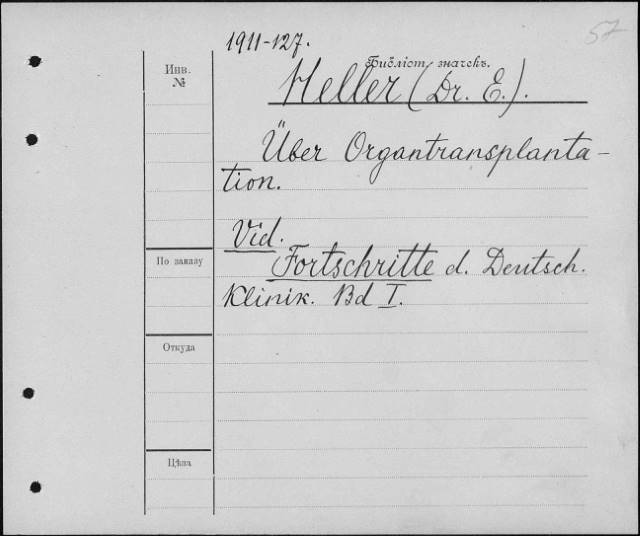 57
1911-127.
Библіот. значекъ.
Инв.
№
Heller (Dr. E.).
Über Organtransplanta-
tion.
Vid.
По заказу
Fortschritte d. Deutsch.
Klinik. Bd I.
Откуда
Цѣна